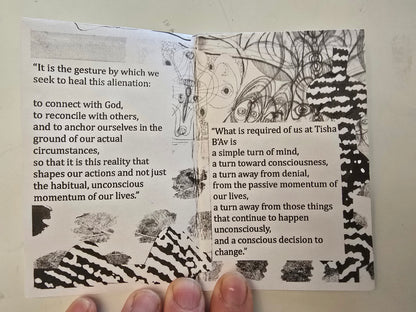 “It is the gesture by which we
seek to heal this alienation:
to connect with God,
to reconcile with others,
and to anchor ourselves in the
ground of our actual
circumstances,
so that it is this reality that
shapes our actions and not just
the habitual, unconscious
momentum of our lives.”
“What is required of us at Tisha
B’Av is
a simple turn of mind,
a turn toward consciousness,
a turn away from denial,
from the passive momentum of
our lives,
a turn away from those things
that continue to happen
unconsciously,
and a conscious decision to
change.”